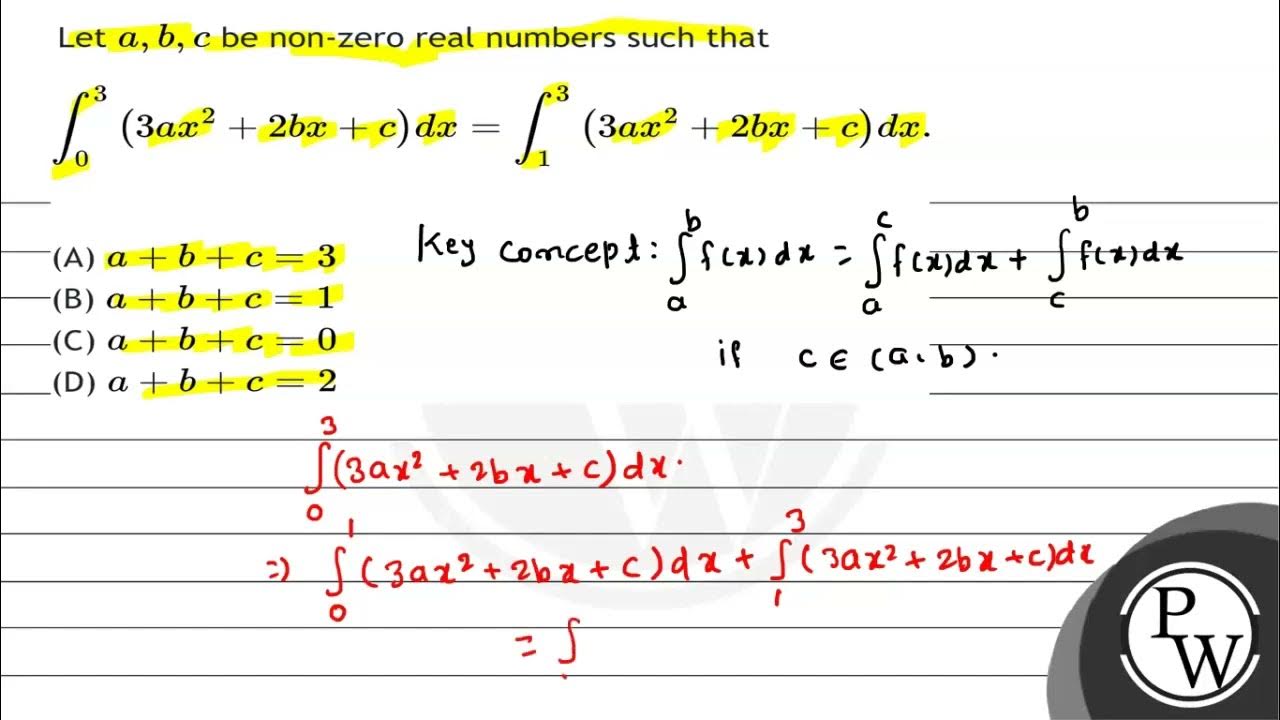 Let a, b, c be non-zero real numbers such that
∫₀³ (3ax² + 2bx + c) dx = ∫₁³ (3ax² + 2bx + c) dx.
(A) a + b + c = 3
(B) a + b + c = 1
(C) a + b + c = 0
(D) a + b + c = 2
Key concept: ∫ₐᵇ f(x) dx = ∫ₐᶜ f(x) dx + ∫꜀ᵇ f(x) dx
if c ∈ (a, b).
∫₀³ (3ax² + 2bx + c) dx.
⇒ ∫₀¹ (3ax² + 2bx + c) dx + ∫₁³ (3ax² + 2bx + c) dx
= ∫
P
W